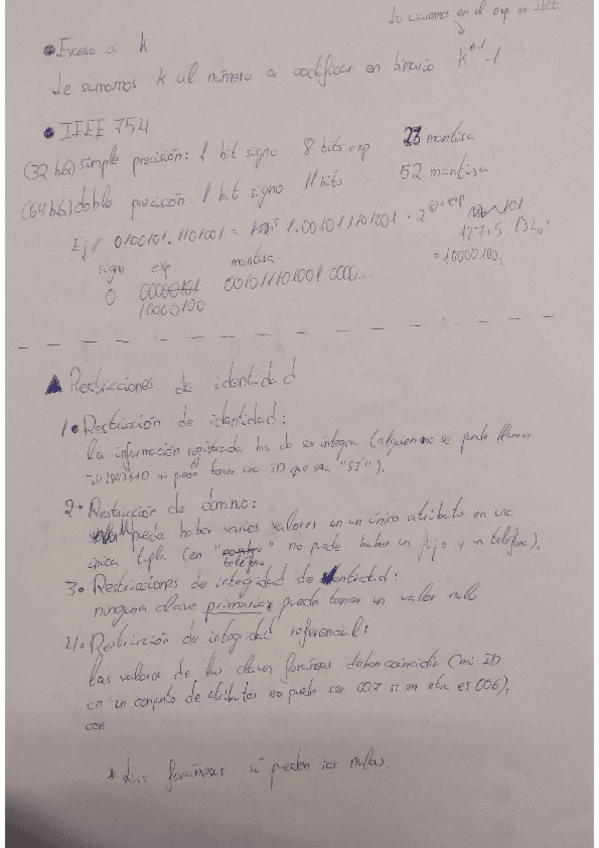 Lo usaremos en el exp en IEEE
● Exceso a k
Le sumamos k al número a codificar en binario k^n-1 - 1
● IEEE 754
(32 bits) simple precisión: 1 bit signo 8 bits exp 23 mantisa
(64 bits) doble precisión: 1 bit signo 11 bits 52 mantisa
Ej// 0100101.1101001 = 1.001011101001 · 2
127+5 = 132
= 10000100
signo exp mantisa
0 00000101 001011101001 0000...
10000100
▲ Restricciones de identidad
1• Restricción de identidad:
La información registrada ha de ser íntegra (alguien no se puede llamar
ni puede tener una ID que sea "SÍ").
2• Restricción de dominio:
puede haber varios valores en un único atributo en una
única tupla (en "teléfono" no puede haber un fijo y un teléfono).
3• Restricciones de integridad de entidad:
ninguna clave primaria* puede tener un valor nulo
4• Restricción de integridad referencial:
Las valores de las claves foráneas deben coincidir (mi ID
en un conjunto de atributos no puede ser 007 si en otra es 006),
con
* Las foráneas sí pueden ser nulas.